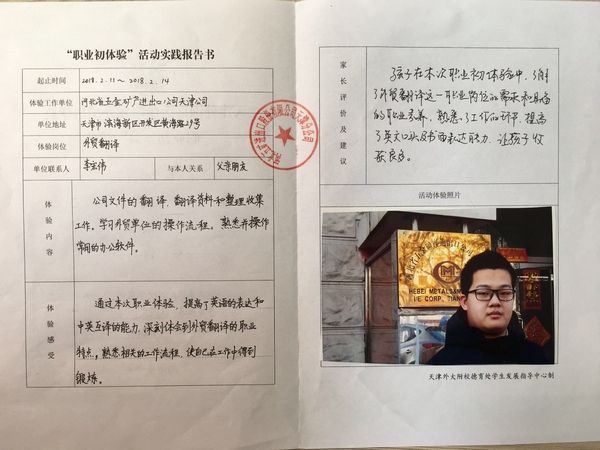 "职业初体验"活动实践报告书
起止时间 2018.2.11～2018.2.14
体验工作单位 河北省五金矿产进出口公司天津公司
单位地址 天津市滨海新区开发区黄海路29号
体验岗位 外贸翻译
单位联系人 李宏伟 与本人关系 父亲朋友
体验内容
公司文件的翻译、翻译资料和整理收集
工作。学习外贸单位的操作流程。熟悉并操作
常用的办公软件。
体验感受
通过本次职业体验，提高了英语的表达和
中英互译的能力。深刻体会到外贸翻译的职业
特点。熟悉相关的工作流程，使自己在工作中得到
锻炼。
家长评价及建议
孩子在本次职业初体验中，了解
了外贸翻译这一职业岗位的需求和具备
的职业素养，熟悉了工作的环节，提高
了英文口头及书面表达能力，让孩子收
获良多。
活动体验照片
HEBEI METALS&
I/E CORP. TIANJ
天津外大附校德育处学生发展指导中心制